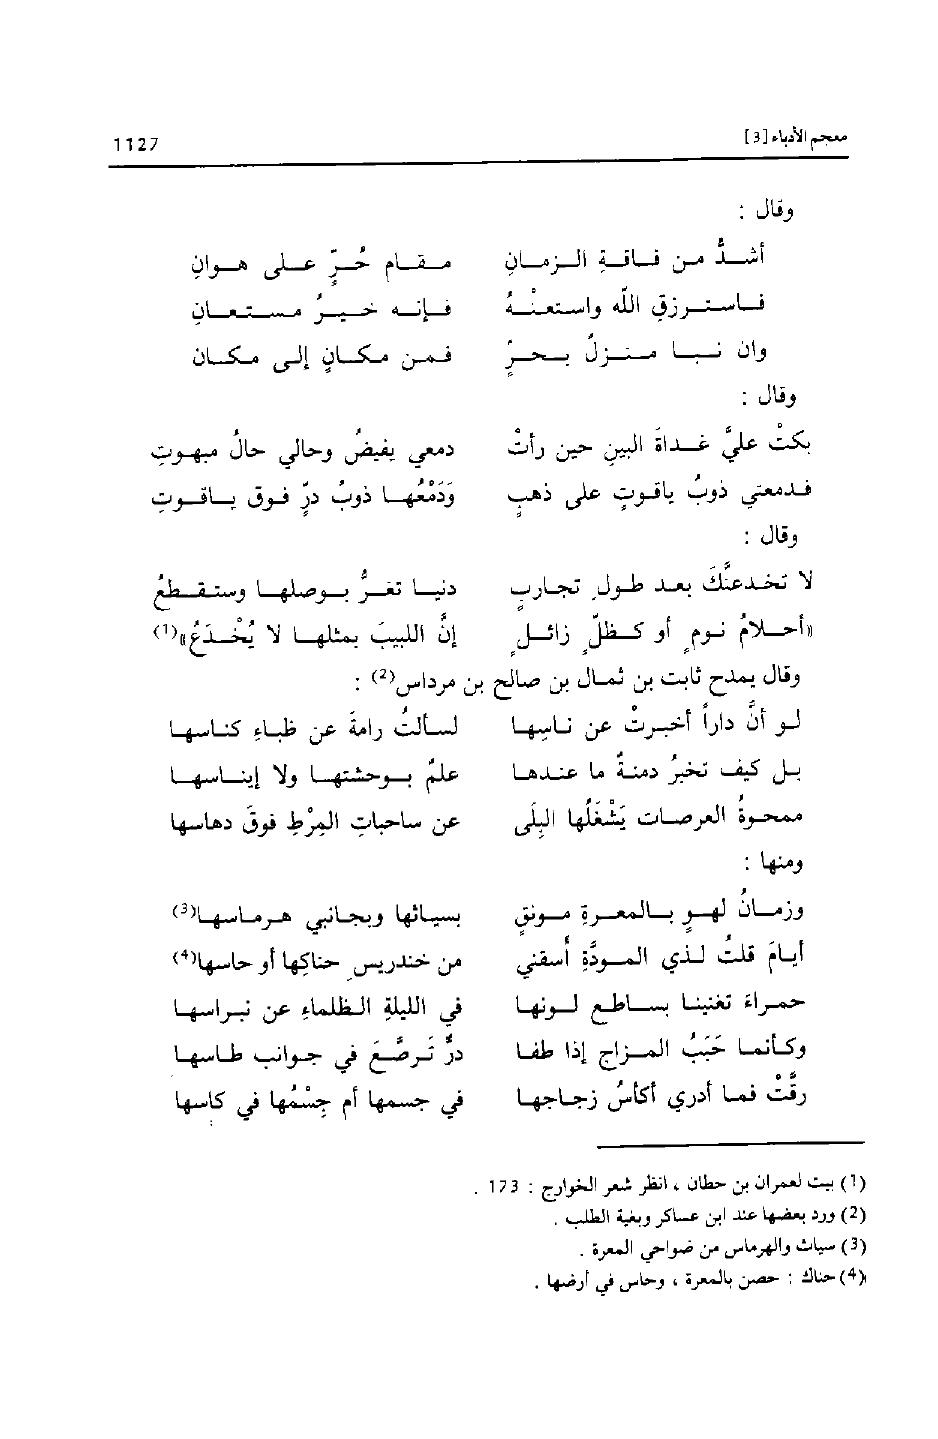 معجم الأدباء [3] 1127
وقال :
أشدُّ من فاقةِ الزمانِ مقام حُرٍّ على هوانِ
فاسترزق الله واستعنْهُ فإنه خيرُ مستعانِ
وان نبا منزلُ بحرٍّ فمن مكانٍ إلى مكان
وقال :
بكتْ عليَّ غداةَ البينِ حين رأتْ دمعي يفيضُ وحالي حالُ مبهوتِ
فدمعتي ذوبُ ياقوتٍ على ذهبٍ وَدَمْعُها ذوبُ درٍّ فوق ياقوتِ
وقال :
لا تخدعنَّكَ بعد طول تجاربٍ دنيا تغرُّ بوصلها وستقطعُ
«أحلامُ نومٍ أو كظلٍّ زائلٍ إنَّ اللبيبَ بمثلها لا يُخْدَعُ»(1)
وقال يمدح ثابت بن ثمال بن صالح بن مرداس(2) :
لو أنَّ داراً أخبرتْ عن ناسِها لسألتُ رامةَ عن ظباءِ كناسها
بل كيف تخبرُ دمنةٌ ما عندها علمٌ بوحشتها ولا إيناسها
ممحوةُ العرصات يَشْغَلُها البِلَى عن ساحباتِ المِرْطِ فوقَ دهاسها
ومنها :
وزمانُ لهوٍ بالمعرةِ مونقٍ بسياثها وبجانبي هرماسها(3)
أيامَ قلتُ لذي المودَّةِ أسقني من خندريس حناكها أو حاسها(4)
حمراءَ تغنينا بساطع لونها في الليلةِ الظلماءِ عن نبراسها
وكأنما حَبَبُ المزاجِ إذا طفا درٌّ تَرصَّعَ في جوانب طاسها
رقَّتْ فما أدري أكأسُ زجاجها في جسمها أم جِسْمُها في كاسها
(1) بيت لعمران بن حطان ، انظر شعر الخوارج : 173 .
(2) ورد بعضها عند ابن عساكر وبغية الطلب .
(3) سياث والهرماس من ضواحي المعرة .
(4) حناك : حصن بالمعرة ، وحاس في أرضها .